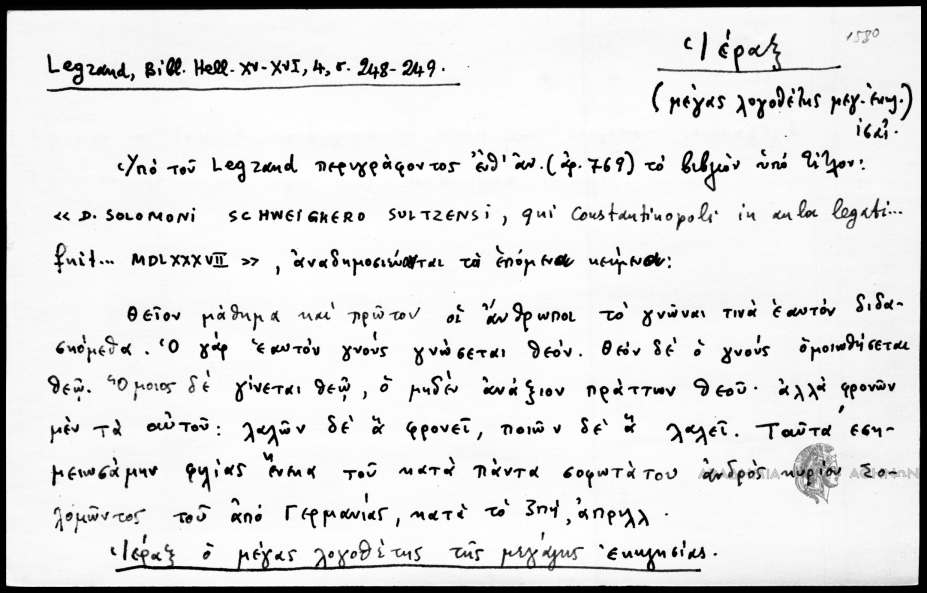 Ἱέραξ 1580
Legrand, Bibl. Hell. XV-XVI, 4, σ. 248-249.
(μέγας λογοθέτης μεγ. ἐκκλ.)
Ὑπό τοῦ Legrand περιγράφοντος ἐνθ' ἀν. (ἀρ. 769) τὸ βιβλίον ὑπό τίτλον:
« D. SOLOMONI SCHWEIGHERO SULTZENSI, qui Constantinopoli in aula legati...
fuit... MDLXXXVII », ἀναδημοσιεύονται τὰ ἑπόμενα κείμενα:
Θεῖον μάθημα καὶ πρῶτον οἱ ἄνθρωποι τὸ γνῶναι τινὰ ἑαυτόν διδα-
σκόμεθα. Ὁ γάρ ἑαυτόν γνούς γνώσεται θεόν. Θεόν δέ ὁ γνούς ὁμοιωθήσεται
θεῷ. Ὅμοιος δέ γίνεται θεῷ, ὁ μηδέν ἀνάξιον πράττων θεοῦ· ἀλλά φρονῶν
μὲν τὰ αὐτοῦ: λαλῶν δὲ ἃ φρονεῖ, ποιῶν δὲ ἃ λαλεῖ. Ταῦτα ἐση-
μειωσάμην φιλίας ἕνεκα τοῦ κατὰ πάντα σοφωτάτου ἀνδρὸς κυρίου Σο-
λομῶντος τοῦ ἀπό Γερμανίας, κατὰ τὸ ζπή, ἀπριλλ.
Ἱέραξ ὁ μέγας λογοθέτης τῆς μεγάλης ἐκκλησίας.